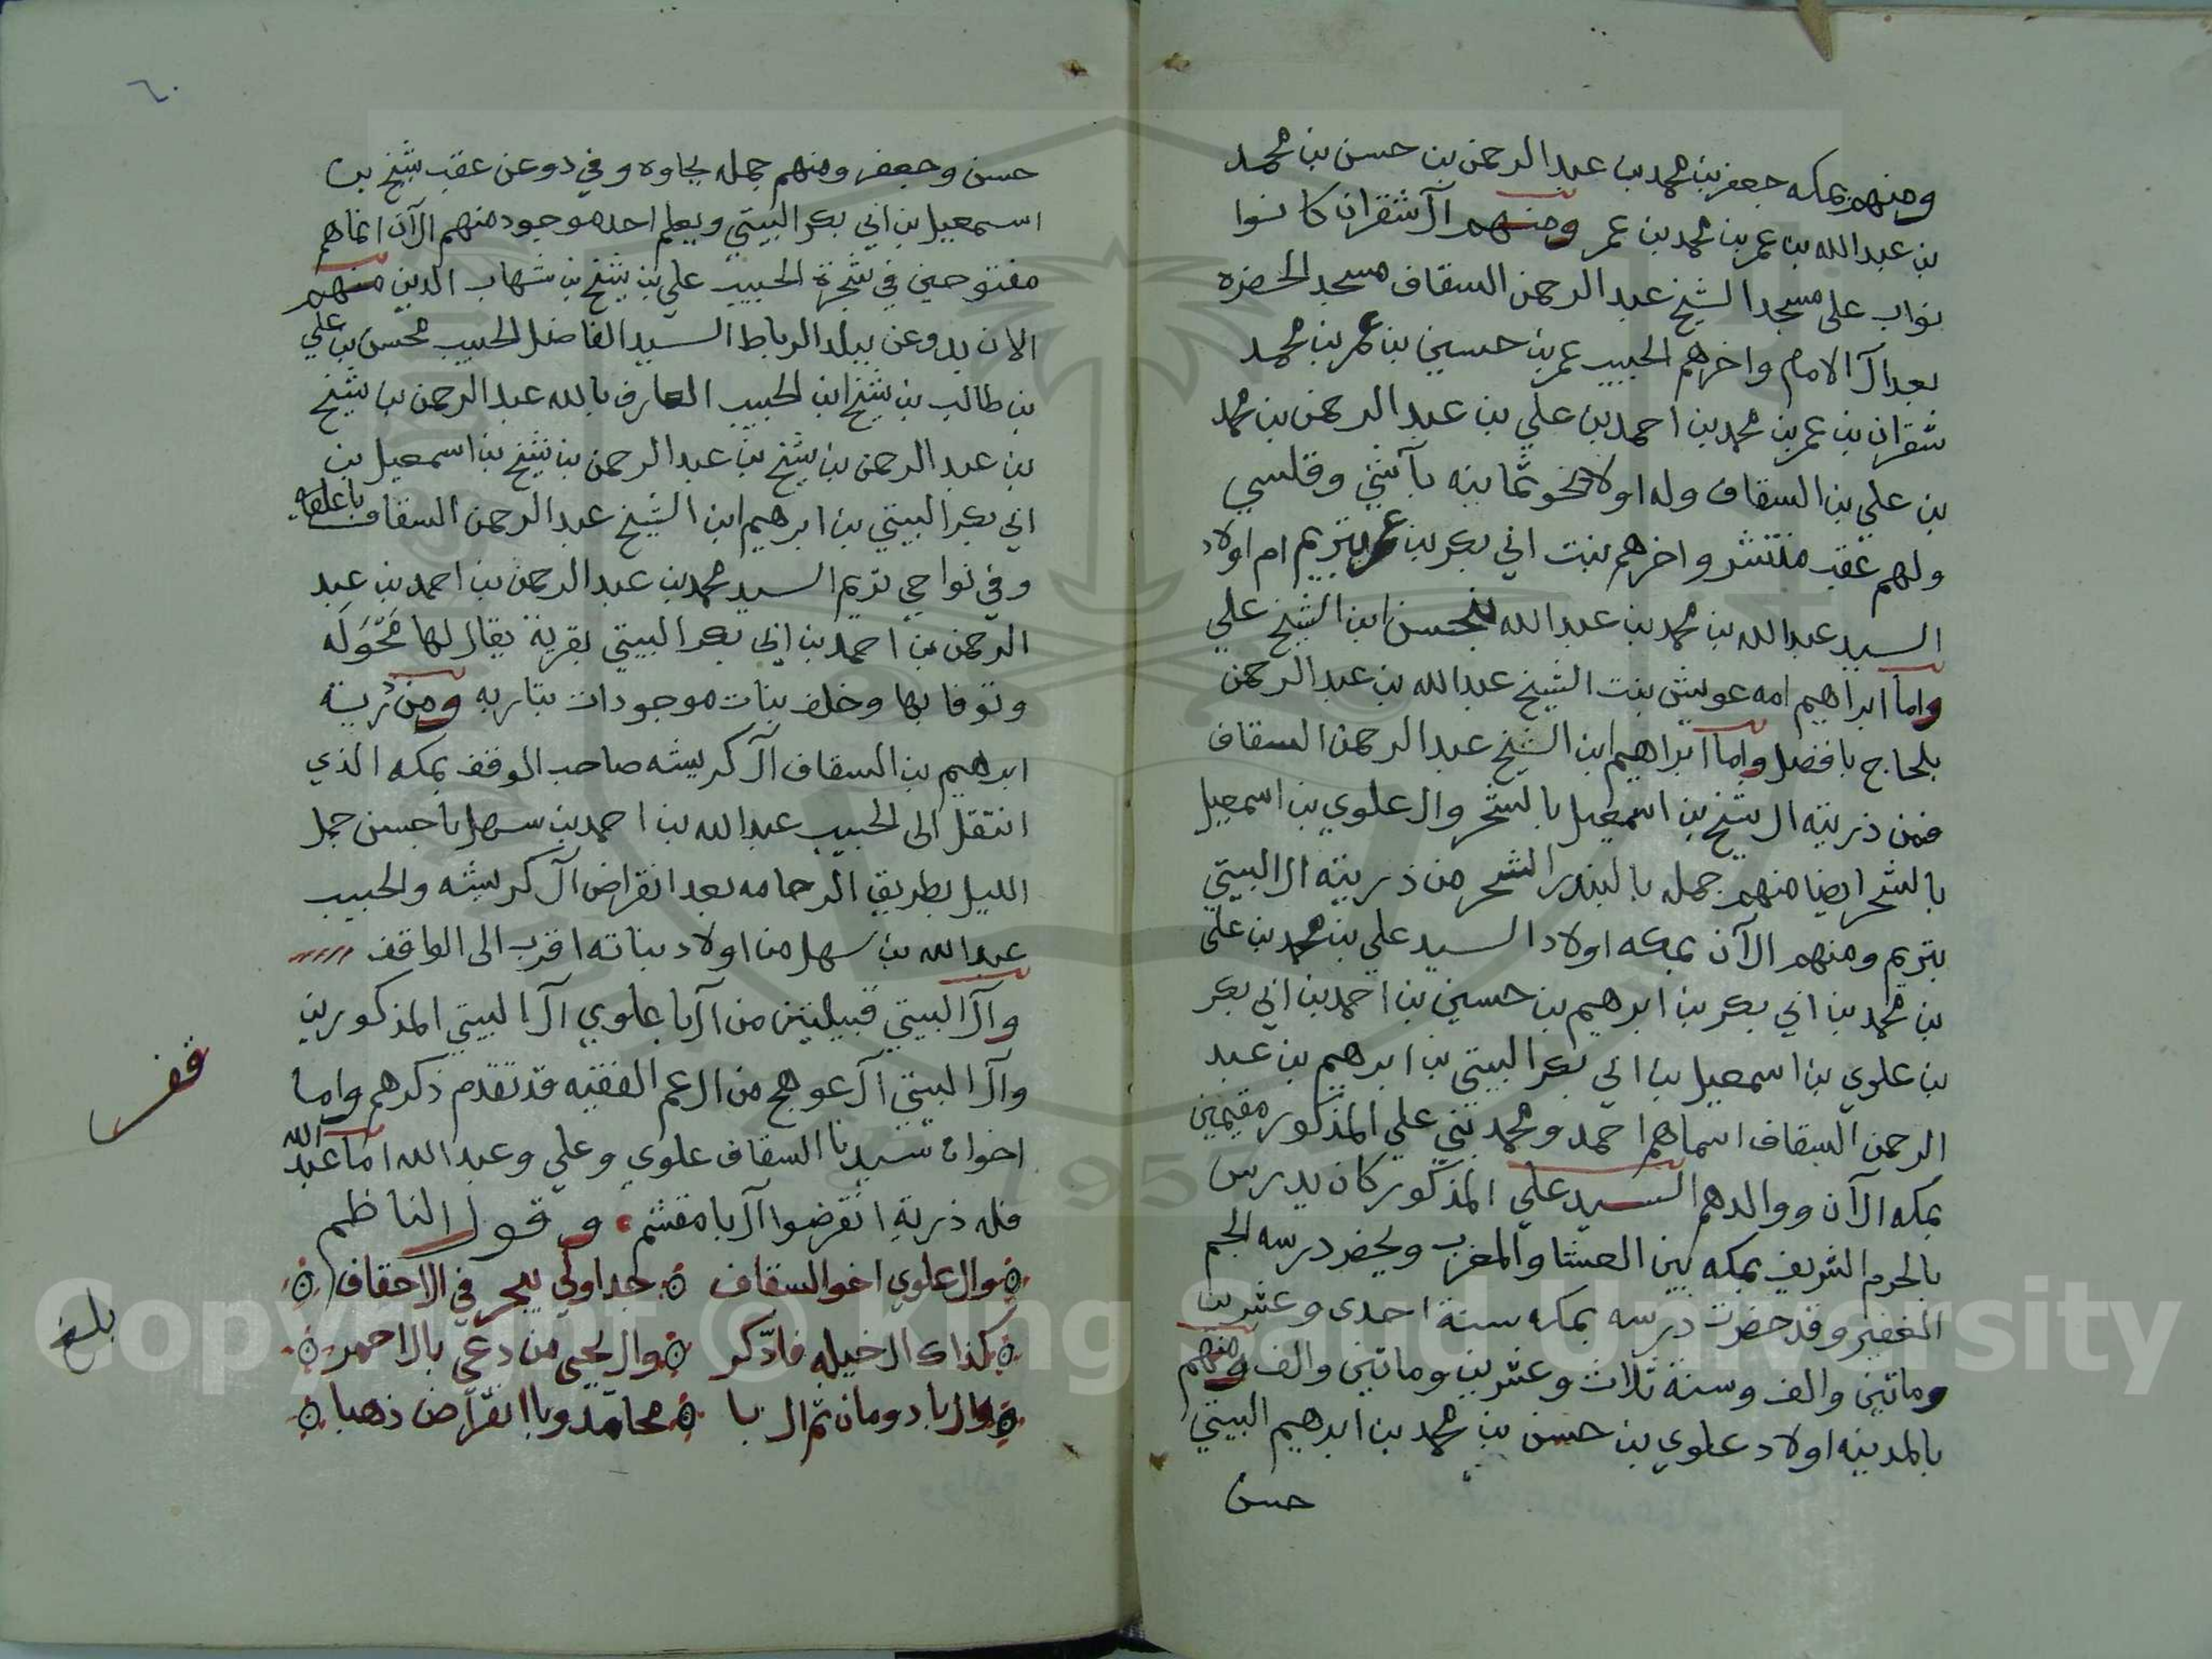 ومنهم بمكه جعفر بن محمد بن عبد الرحمن بن حسن بن محمد
بن عبد الله بن عمر بن محمد بن عمر ومنهم آل شقران كانوا
نواب على مسجد الشيخ عبد الرحمن السقاف مسجد الحضره
بعد آل الامام واخرهم الحبيب عمر بن حسين بن عمر بن محمد
شقران بن عمر بن محمد بن احمد بن علي بن عبد الرحمن بن محمد
بن علي بن السقاف وله اولاد نحو ثمانيه بآشي وقلسي
ولهم عقب منتشر واخرهم بنت ابي بكر بن عمر بتريم ام اولاد
السيد عبد الله بن محمد بن عبد الله بن حسن ابن الشيخ علي
واما ابراهيم امه عويش بنت الشيخ عبد الله بن عبد الرحمن
بلحاج بافضل واما ابراهيم ابن الشيخ عبد الرحمن السقاف
فمن ذريته ال شيخ بن اسمعيل بالشحر وال علوي بن اسمعيل
بالشحر ايضا منهم جمله بالبندر الشحر من ذريته ال البيتي
بتريم ومنهم الآن بمكه اولاد السيد علي بن محمد بن علي
بن محمد بن ابي بكر بن ابرهيم بن حسين بن احمد بن ابي بكر
بن علوي بن اسمعيل بن ابي بكر البيتي بن ابرهيم بن عبد
الرحمن السقاف اسماهم احمد ومحمد بني علي المذكور مقيمين
بمكه الآن ووالدهم السيد علي المذكور كان يدرس
بالحرم الشريف بمكه بين العشا والمغرب ويحضر درسه الجم
الغفير وقد حضرت درسه بمكه سنة احدى وعشرين
وماتين والف وسنة ثلاث وعشرين وماتين والف ومنهم
بالمدينه اولاد علوي بن حسن بن محمد بن ابرهيم البيتي
حسن
٦٠
حسن وجعفر ومنهم جمله بجاوه وفي دوعن عقب شيخ بن
اسمعيل بن ابي بكر البيتي ويعلم احد موجود منهم الآن انماهم
مفتوحين في شجرة الحبيب علي بن شيخ بن شهاب الدين منهم
الان بدوعن ببلد الرباط السيد الفاضل الحبيب محسن بن علي
بن طالب بن شيخ ابن الحبيب العارف بالله عبد الرحمن بن شيخ
بن عبد الرحمن بن شيخ بن عبد الرحمن بن شيخ بن اسمعيل بن
ابي بكر البيتي بن ابرهيم ابن الشيخ عبد الرحمن السقاف
وفي نواحي تريم السيد محمد بن عبد الرحمن بن احمد بن عبد
الرحمن بن احمد بن ابي بكر البيتي بقرية يقال لها مَحْوَلَه
وتوفا بها وخلف بنات موجودات بتاربه ومن ذرية
ابرهيم بن السقاف آل كريشه صاحب الوقف بمكه الذي
انتقل الى الحبيب عبد الله بن احمد بن سهل باحسن جمل
الليل بطريق الرحامه بعد انقراض آل كريشه والحبيب
عبد الله بن سهل من اولاد بناته اقرب الى الواقف
وآل البيتي قبيلتين من آل باعلوي آل البيتي المذكورين
وآل البيتي آل عوهج من ال عم الفقيه قد تقدم ذكرهم واما
اخوان سيدنا السقاف علوي وعلي وعبد الله اما عبد الله
فله ذرية انقرضوا آل بامقشم وقول الناظم
وال علوي اخو السقاف جداولي ببحر في الاحقاف
كذاك ال خيله فادّكر وال يحيى من دعي بال احمر
وال بادومان ثم ال با محامد وبا انقراض ذهبا
قف
بلغ
Copyright © King Saud University
1957